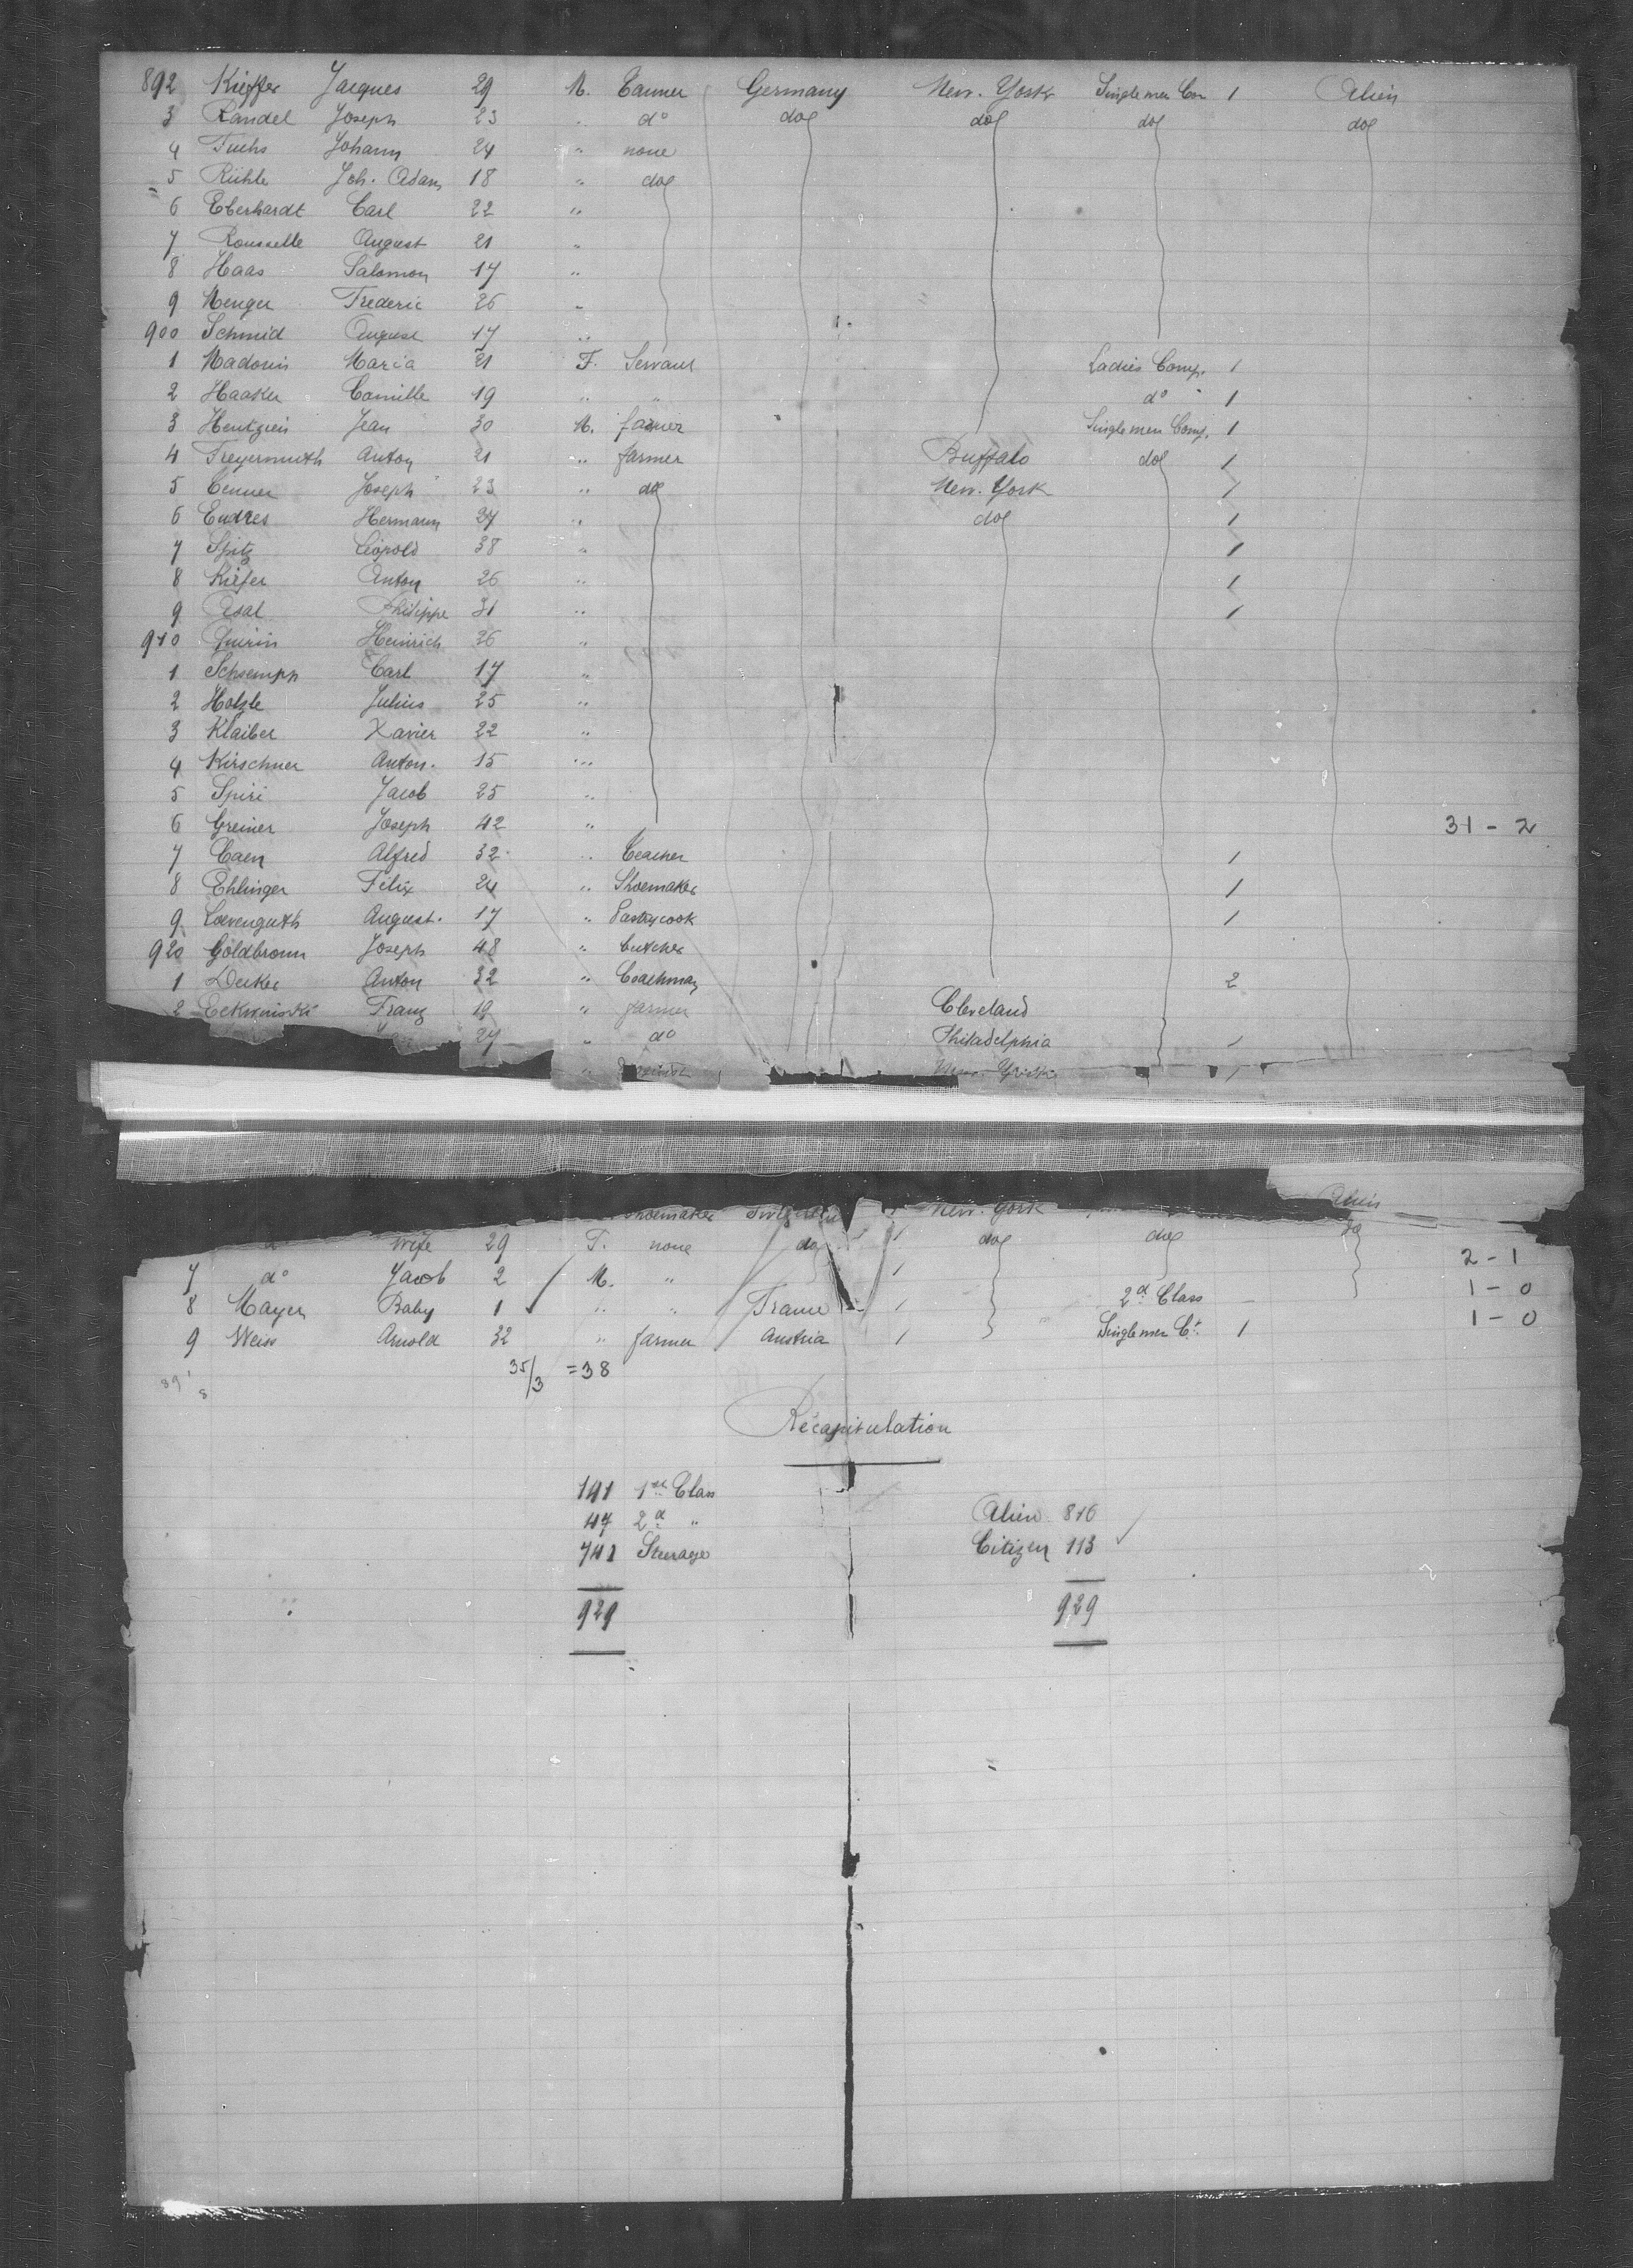 892 Kieffer Jacques 29 M. Tanner Germany New-York Singlemen Com 1 Alien
3 Randel Joseph 23 " do do do do do
4 Fuchs Johann 24 " none
5 Rühle Joh. Adam 18 " do
6 Eberhardt Carl 22 "
7 Rousselle August 21 "
8 Haas Salomon 17 "
9 Menger Frederic 26 "
900 Schmid August 17 "
1 Madorin Maria 21 F. Servant Ladies Comp. 1
2 Haaker Camille 19 " " do 1
3 Hentzien Jean 30 M. Singlemen Comp. 1
4 Freyermuth Anton 21 " farmer Buffalo do 1
5 Cenner Joseph 23 " do New-York 1
6 Endres Hermann 27 " do 1
7 Spitz Léopold 38 " 1
8 Kiefer Anton 26 " 1
9 Asal Philippe 31 " 1
910 Quirin Heinrich 26 "
1 Schsempp Carl 17 "
2 Holzle Julius 25 "
3 Klaiber Xavier 22 "
4 Kirschner Anton. 15 "
5 Spiri Jacob 25 "
6 Greiner Joseph 42 " 31 - 2
7 Caen Alfred 32 " Teacher 1
8 Ehlinger Félix 24 " Shoemaker 1
9 Loevenguth August. 17 " Pastrycook 1
920 Goldbronn Joseph 48 " Butcher
1 Decker Anton 32 " Coachman 2
2 Franz 19 " farmer Cleveland
27 " do Philadelphia 1
" New-York 1
Shoemaker New-York Alien
Wife 29 F. none do 1 do do do
7 do Jacob 2 M. " 1 2 - 1
8 Mayer Baby 1 " " France 1 2d Class 1 - 0
9 Weiss Arnold 32 " farmer Austria 1 Singlemen Ct. 1 1 - 0
35/3 = 38
Récapitulation
141 1st Class
47 2d "
741 Steerage
929
Alien 816
Citizen 113
929